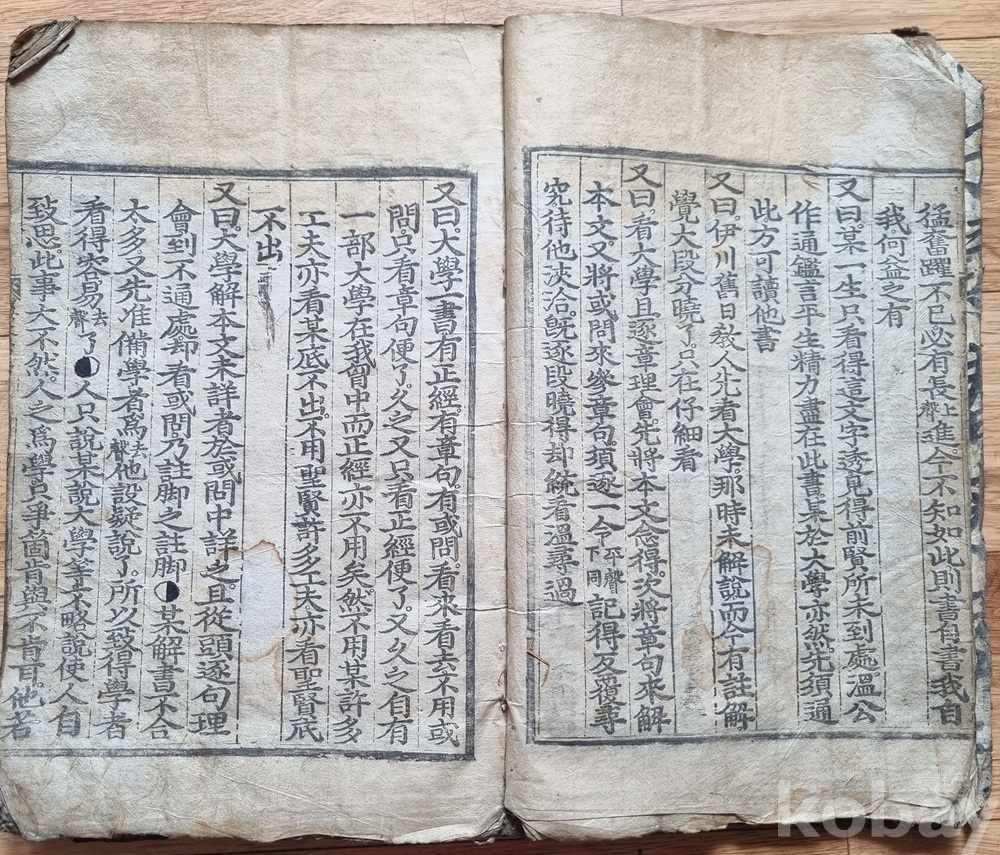 猛奮躍不已必有長上聲進今不知如此則書自書我自
我何益之有
又曰某一生只看得這文字透見得前賢所未到處溫公
作通鑑言平生精力盡在此書某於大學亦然先須通
此方可讀他書
又曰伊川舊日敎人先看大學那時未解說而今有註解
覺大段分曉了只在仔細看
又曰看大學且逐章理會先將本文念得次將章句來解
本文又將或問來參章句須逐一令平聲下同記得反覆尋
究待他浹洽旣逐段曉得却統看溫尋過
又曰大學一書有正經有章句有或問看來看去不用或
問只看章句便了久之又只看正經便了又久之自有
一部大學在我胷中而正經亦不用矣然不用某許多
工夫亦看某底不出不用聖賢許多工夫亦看聖賢底
不出
又曰大學解本文未詳者於或問中詳之且從頭逐句理
會到不通處却看或問乃註脚之註脚某解書不合
太多又先准備學者爲去聲他設疑說了所以致得學者
看得容易去聲了人只說某說大學等不略說使人自
致思此事大不然人之爲學只爭箇肯與不肯耳他若
kobay